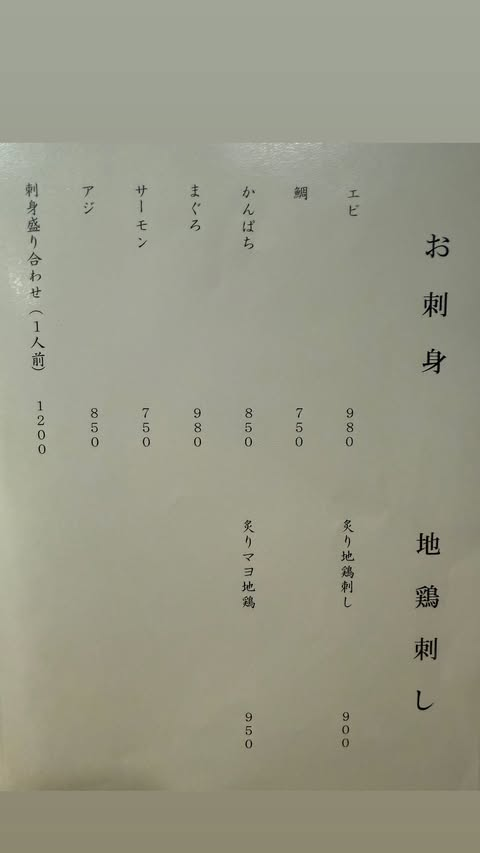 お刺身
エビ 980
鯛 750
かんぱち 850
まぐろ 980
サーモン 750
アジ 850
刺身盛り合わせ(1人前) 1200
地鶏刺し
炙り地鶏刺し 900
炙りマヨ地鶏 950